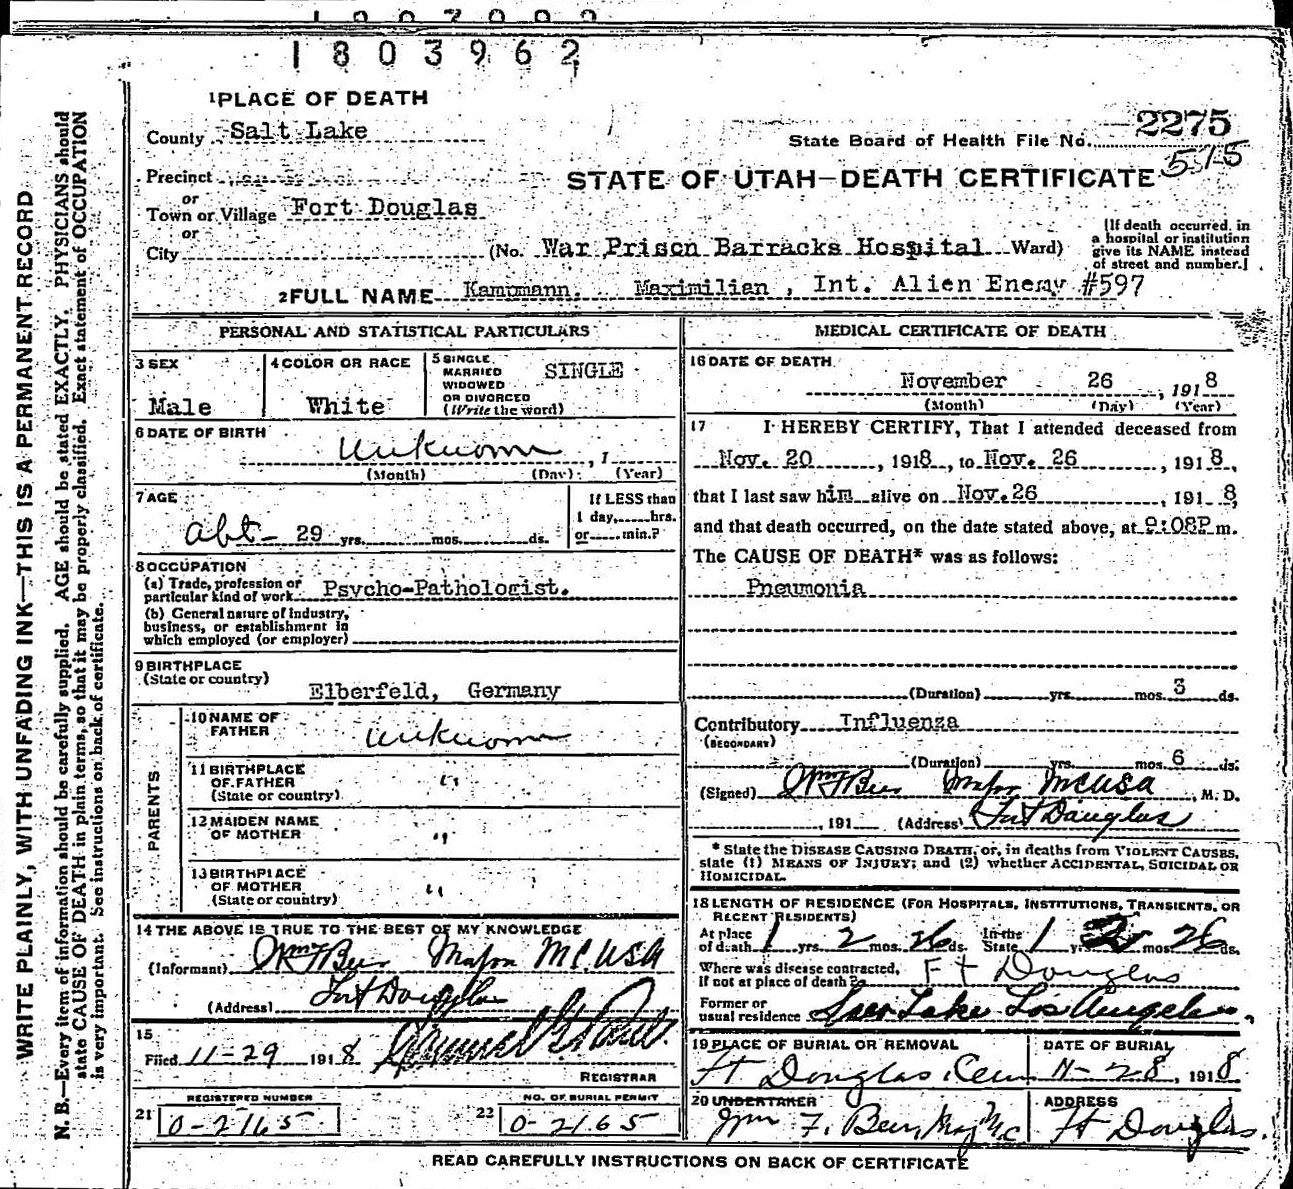 1803962
1 PLACE OF DEATH
County Salt Lake
State Board of Health File No. 2275
515
Precinct
or
Town or Village Fort Douglas
STATE OF UTAH—DEATH CERTIFICATE
or
City (No. War Prison Barracks Hospital Ward)
[If death occurred in
a hospital or institution
give its NAME instead
of street and number.]
2 FULL NAME Kampmann, Maximilian, Int. Alien Enemy #597
PERSONAL AND STATISTICAL PARTICULARS
3 SEX
Male
4 COLOR OR RACE
White
5 SINGLE
MARRIED
WIDOWED
OR DIVORCED
(Write the word)
SINGLE
6 DATE OF BIRTH
Unknown , 1
(Month) (Day) (Year)
7 AGE
abt 29 yrs. mos. ds.
If LESS than
1 day, hrs.
or min.?
8 OCCUPATION
(a) Trade, profession or
particular kind of work Psycho-Pathologist.
(b) General nature of industry,
business, or establishment in
which employed (or employer)
9 BIRTHPLACE
(State or country)
Elberfeld, Germany
PARENTS
10 NAME OF
FATHER
Unknown
11 BIRTHPLACE
OF FATHER
(State or country)
"
12 MAIDEN NAME
OF MOTHER
"
13 BIRTHPLACE
OF MOTHER
(State or country)
"
14 THE ABOVE IS TRUE TO THE BEST OF MY KNOWLEDGE
(Informant) Major MC USA
(Address) Fort Douglas
15
Filed 11-29 1918
REGISTRAR
REGISTERED NUMBER
21 0-2165
NO. OF BURIAL PERMIT
22 0-2165
MEDICAL CERTIFICATE OF DEATH
16 DATE OF DEATH
November 26 , 1918
(Month) (Day) (Year)
17 I HEREBY CERTIFY, That I attended deceased from
Nov. 20 , 1918, to Nov. 26 , 1918,
that I last saw him alive on Nov. 26 , 1918,
and that death occurred, on the date stated above, at 9:08P m.
The CAUSE OF DEATH* was as follows:
Pneumonia
(Duration) yrs. mos. 3 ds.
Contributory Influenza
(SECONDARY)
(Duration) yrs. mos. 6 ds.
(Signed) Major MC USA , M. D.
, 191 (Address) Fort Douglas
* State the DISEASE CAUSING DEATH, or, in deaths from VIOLENT CAUSES,
state (1) MEANS OF INJURY; and (2) whether ACCIDENTAL, SUICIDAL OR
HOMICIDAL.
18 LENGTH OF RESIDENCE (FOR HOSPITALS, INSTITUTIONS, TRANSIENTS, OR
RECENT RESIDENTS)
At place
of death 1 yrs. 2 mos. 26 ds.
In the
State 1 yrs. 2 mos. 26 ds.
Where was disease contracted,
if not at place of death? Ft Douglas
Former or
usual residence Lake Los Angeles
19 PLACE OF BURIAL OR REMOVAL
Ft Douglas, Cem
DATE OF BURIAL
11-28, 1918
20 UNDERTAKER
Wm F. Maj MC
ADDRESS
Ft Douglas.
READ CAREFULLY INSTRUCTIONS ON BACK OF CERTIFICATE
WRITE PLAINLY, WITH UNFADING INK—THIS IS A PERMANENT RECORD
N. B.—Every item of information should be carefully supplied. AGE should be stated EXACTLY. PHYSICIANS should
state CAUSE OF DEATH in plain terms, so that it may be properly classified. Exact statement of OCCUPATION
is very important. See instructions on back of certificate.